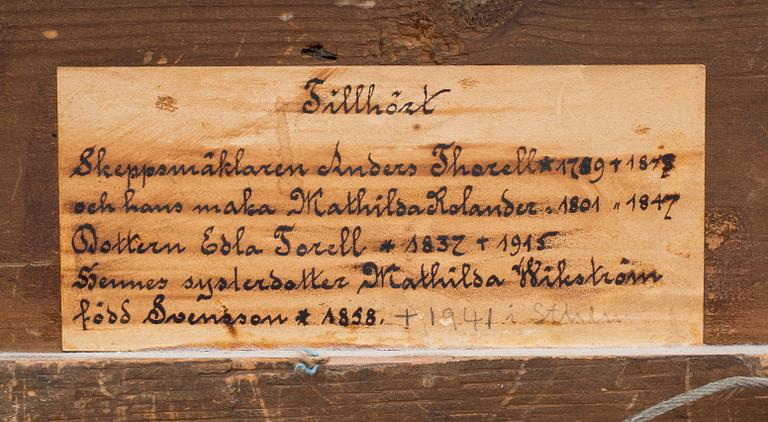 Tillhört
Skeppsmäklaren Anders Thorell * 1789 + 1847
och hans maka Mathilda Rolander " 1801 " 1847
Dottern Edla Torell * 1832 + 1915
Hennes systerdotter Mathilda Wikström
född Svensson * 1858. + 1941 i Sthlm